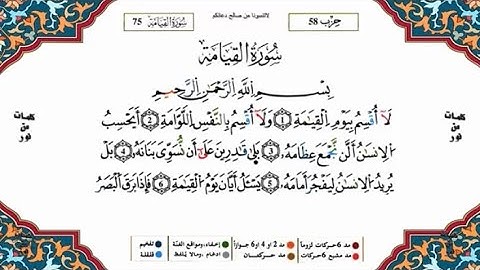 لاتنسونا من صالح دعائكم
حِزْب 58
سُورَةُ القِيَامَة 75
سُورَةُ القِيَامَة
بِسْمِ اللَّهِ الرَّحْمَٰنِ الرَّحِيمِ
لَا أُقْسِمُ بِيَوْمِ الْقِيَامَةِ ١ وَلَا أُقْسِمُ بِالنَّفْسِ اللَّوَّامَةِ ٢ أَيَحْسَبُ
الْإِنسَانُ أَلَّن نَّجْمَعَ عِظَامَهُ ٣ بَلَىٰ قَادِرِينَ عَلَىٰ أَن نُّسَوِّيَ بَنَانَهُ ٤ بَلْ
يُرِيدُ الْإِنسَانُ لِيَفْجُرَ أَمَامَهُ ٥ يَسْـَٔلُ أَيَّانَ يَوْمُ الْقِيَامَةِ ٦ فَإِذَا بَرِقَ الْبَصَرُ
كلمات
من
نور
كلمات
من
نور
مد 6 حركات لزوماً مد 2 او 4 او 6 جوازاً إخفاء، ومواقع الغنة تفخيم
مد مشبع 6 حركات مد حركتان ادغام، ومالا يلفظ قلقلة